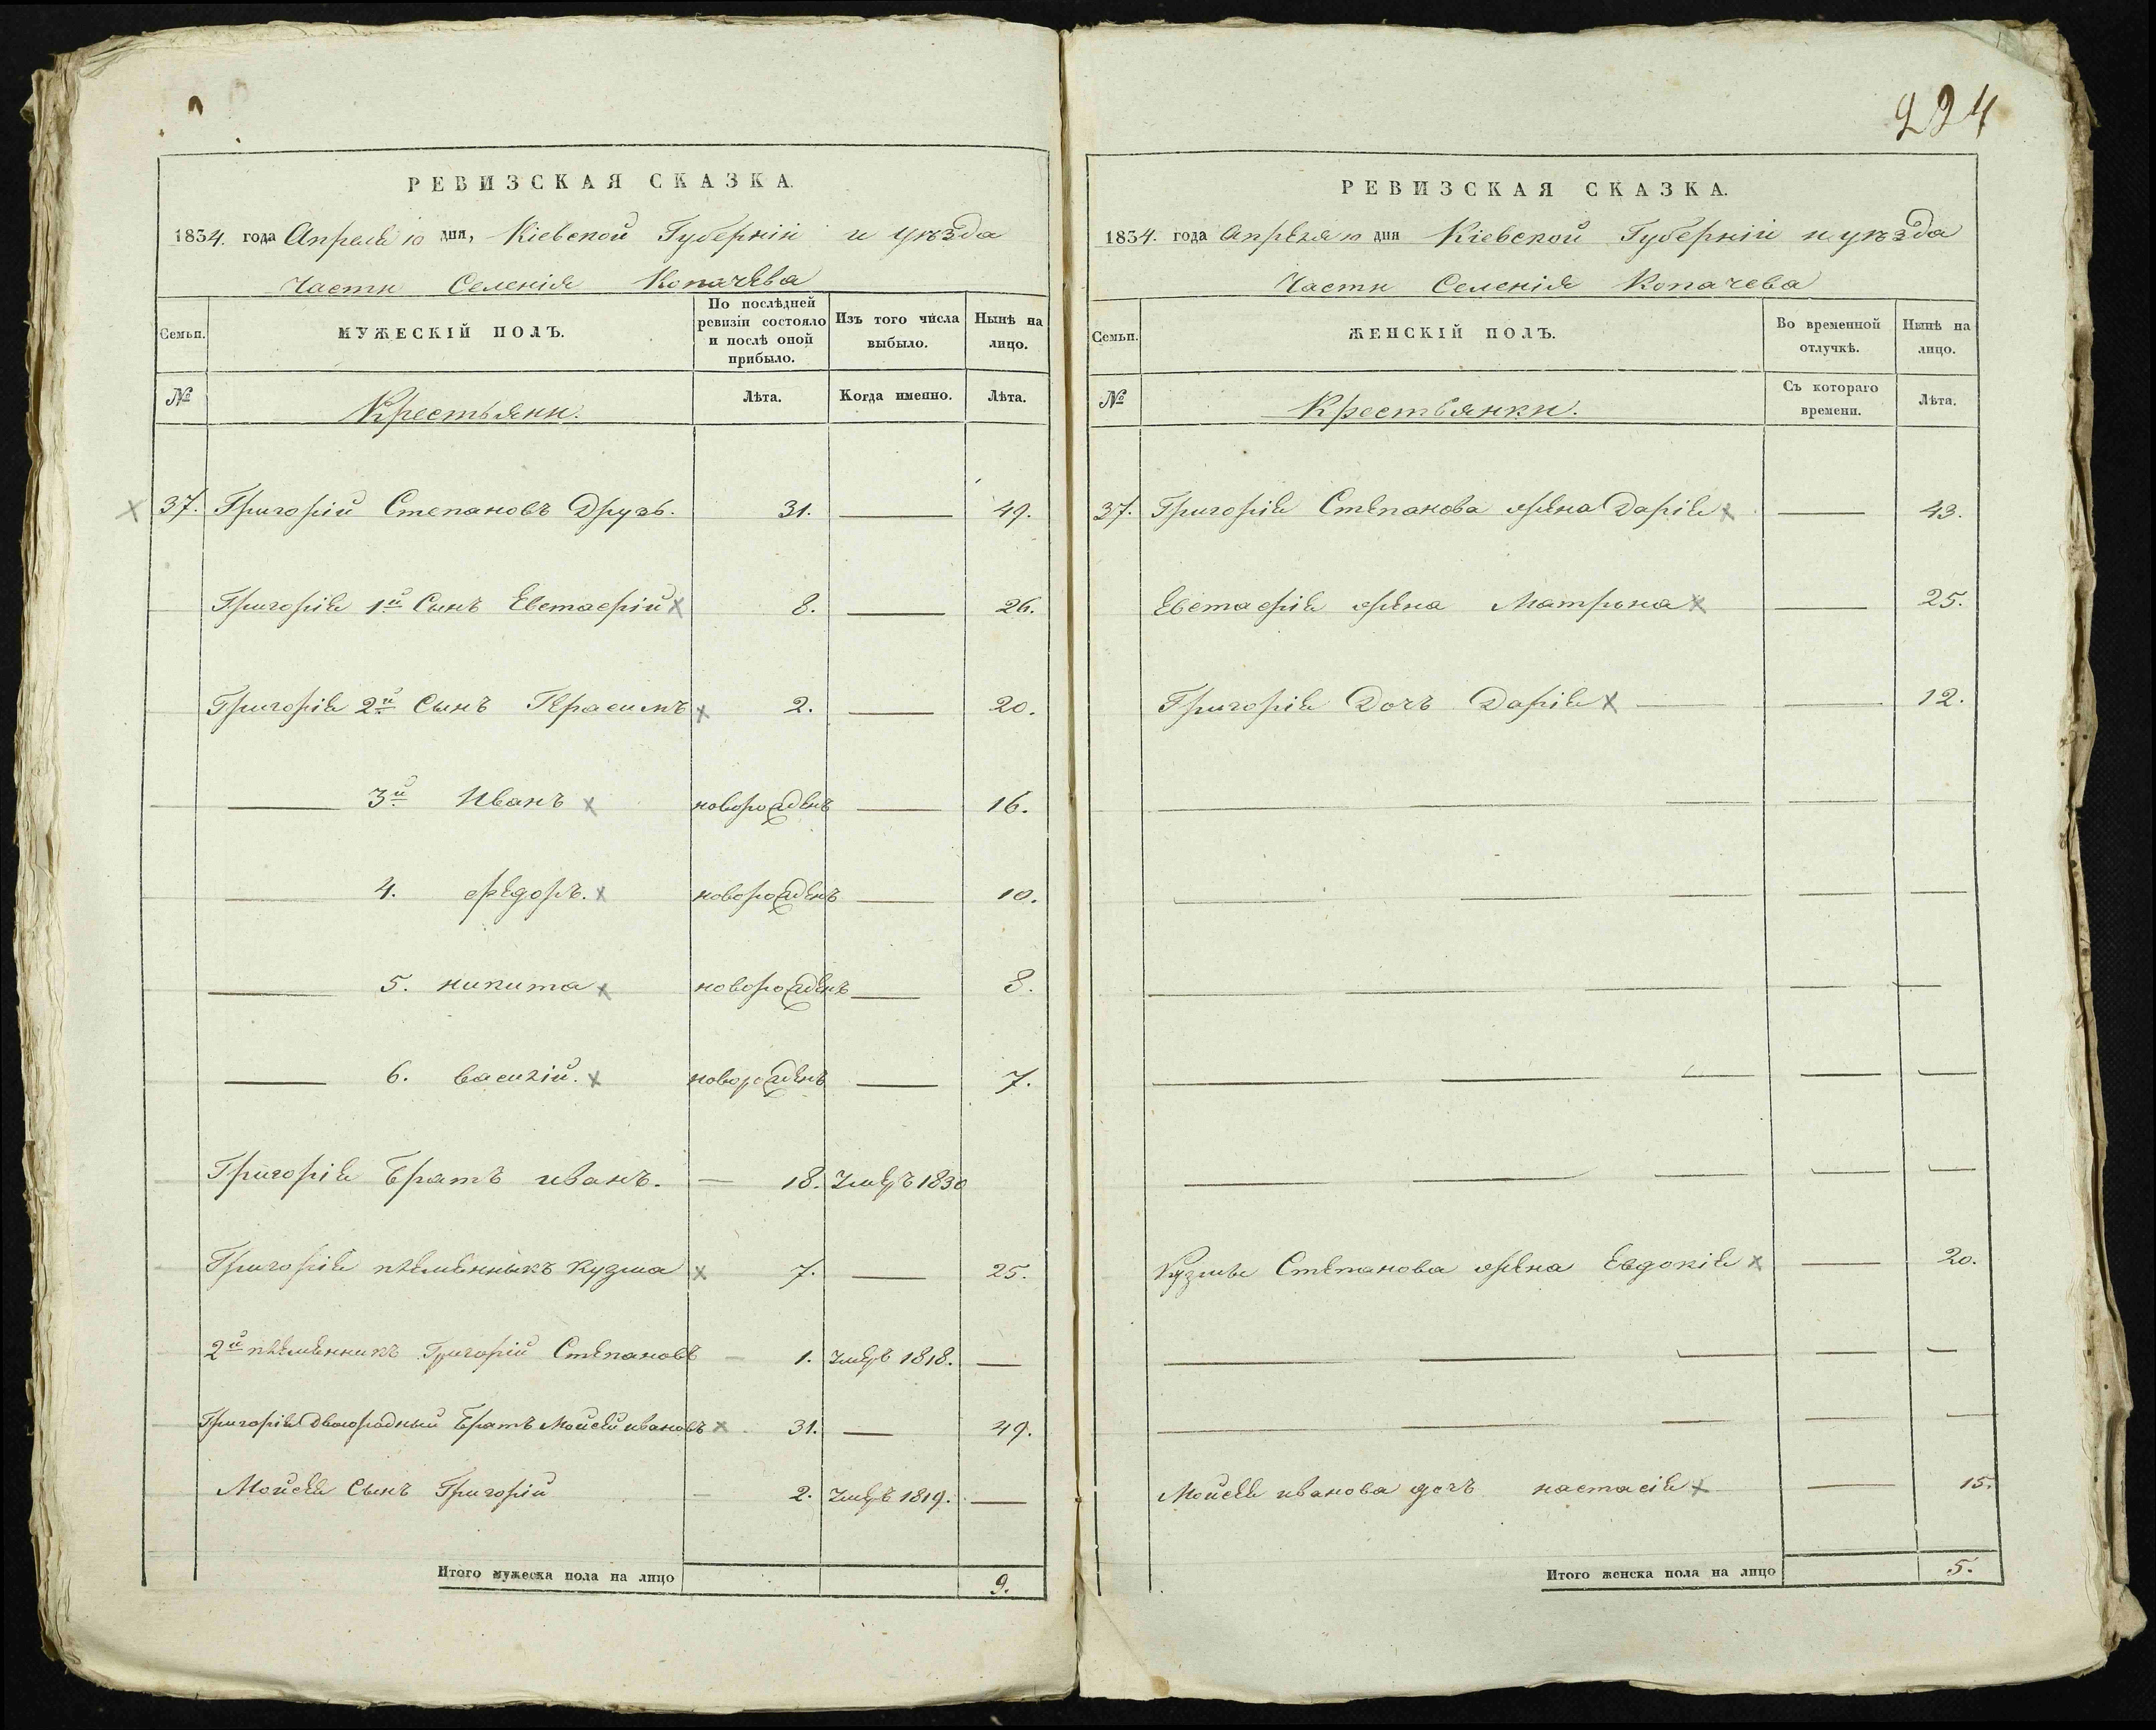 224
РЕВИЗСКАЯ СКАЗКА.
1834. года Апреля 10 дня, Кіевской Губерніи и уѣзда
Части Селенія Копачева
Семьи.
МУЖЕСКІЙ ПОЛЪ.
По послѣдней ревизіи состояло и послѣ оной прибыло.
Изъ того числа выбыло.
Нынѣ на лицо.
№
Крестьяни.
Лѣта.
Когда именно.
Лѣта.
37. Григорій Степановъ Друзь. 31. 49.
Григорія 1й Сынъ Евстафрій 8. 26.
Григорія 2й Сынъ 2. 20.
3й Иванъ новорожденъ 16.
4. Федоръ. новорожденъ 10.
5. никита новорожденъ 8.
6. василій. новорожденъ 7.
Григорія Братъ иванъ. 18. Умеръ 1830
Григорія племенныкъ Кузма 7. 25.
2й племенникъ Григорій Степановъ 1. Умеръ 1818.
Григорія двоюродный Братъ Мойсей ивановъ 31. 49.
Мойсея Сынъ Григорій 2. Умеръ 1819.
Итого мужеска пола на лицо 9.
РЕВИЗСКАЯ СКАЗКА.
1834. года Апреля 10 дня Кіевской Губерніи и уѣзда
Части Селенія Копачева
Семьи.
ЖЕНСКІЙ ПОЛЪ.
Во временной отлучкѣ.
Нынѣ на лицо.
№
Крестьянки.
Съ котораго времени.
Лѣта.
37. Григорія Степанова жена Дарія 43.
Евстафрія жена Матрона 25.
Григорія Дочь Дарія 12.
Кузмы Степанова жена Евдокія 20.
Мойсея иванова дочь настасія 15.
Итого женска пола на лицо 5.